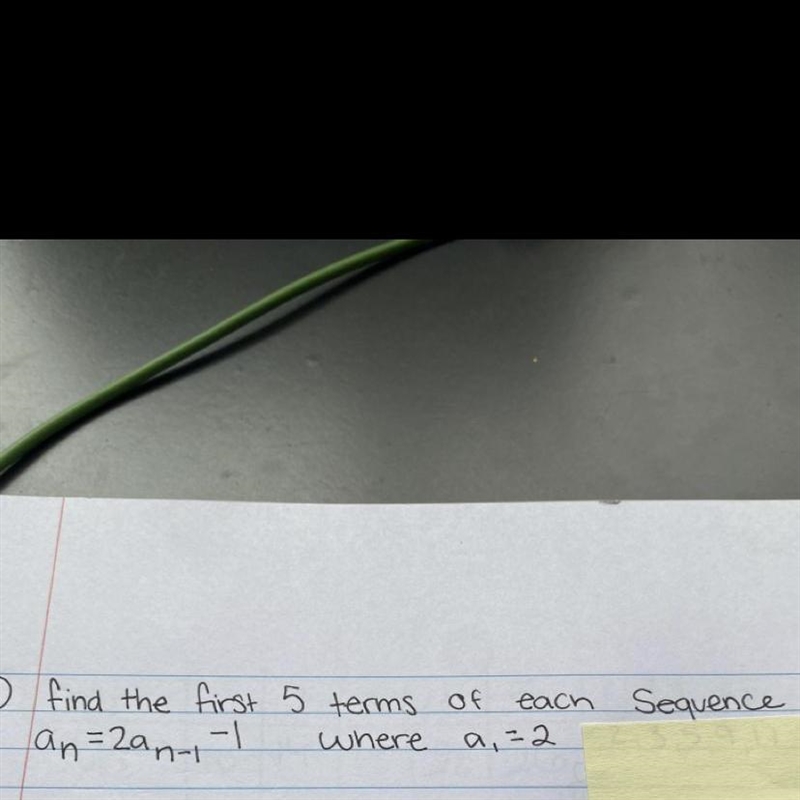 find the first 5 terms of each Sequence
aₙ = 2aₙ₋₁ -1 where a₁ = 2